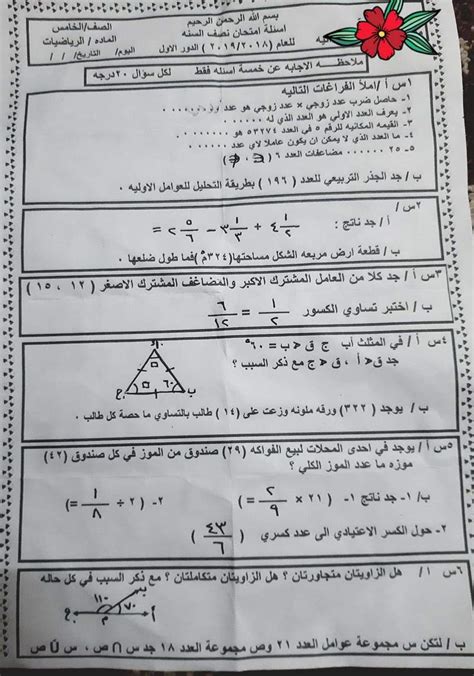 بسم الله الرحمن الرحيم
الصف/الخامس
اسئلة امتحان نصف السنه
المادة / الرياضيات
للعام (٢٠١٩/٢٠١٨) الدور الاول
اليوم/ التاريخ/ / /
ملاحظه الاجابه عن خمسة اسئله فقط لكل سؤال ٢٠درجه
س١ أ /املأ الفراغات التاليه
١- حاصل ضرب عدد زوجي × عدد زوجي هو عدد ..........
٢- يعرف العدد الاولي هو العدد الذي له ..........
٣- القيمه المكانيه للرقم ٥ في العدد ٥٣٢٧٤ هو ..........
٤- ما العدد الذي لا يمكن ان يكون عاملا لاي عدد ......
٥- ٢٥ ...... مضاعفات العدد ٦ ( ∋ ، ∌ )
ب / جد الجذر التربيعي للعدد ( ١٩٦ ) بطريقة التحليل للعوامل الاوليه .
س٢ /
أ / جد ناتج : ٤ ١/٢ + ٣ ١/٣ − ٢ ٥/٦ =
ب / قطعة ارض مربعه الشكل مساحتها(٣٢٤م٢)فما طول ضلعها .
س٣ أ / جد كلا من العامل المشترك الاكبر والمضاعف المشترك الاصغر ( ١٢ ، ١٥ )
ب / اختبر تساوي الكسور ١/٢ = ٦/١٢
س٤ أ / في المثلث أب ج ق>ب = ٦٠°
جد ق>أ ، ق>ج مع ذكر السبب ؟
أ
٦٠
ج ب
ب / يوجد (٣٢٢) ورقه ملونه وزعت على (١٤) طالب بالتساوي ما حصة كل طالب .
س٥ أ / يوجد في احدى المحلات لبيع الفواكه (٢٩) صندوق من الموز في كل صندوق (٤٢)
موزه ما عدد الموز الكلي ؟
ب/ ١- جد ناتج ١- ( ٢١ × ٢/٩ = ) ٢- ( ٢ ÷ ١/٨ = )
٢- حول الكسر الاعتيادي الى عدد كسري ( ٤٣/٦ )
س٦ أ / هل الزاويتان متجاورتان ؟ هل الزاويتان متكاملتان ؟ مع ذكر السبب في كل حاله
١١٠ ٧٠
ج م أ
ب / لتكن س مجموعة عوامل العدد ٢١ وص مجموعة العدد ١٨ جد س ∩ ص ، س U ص